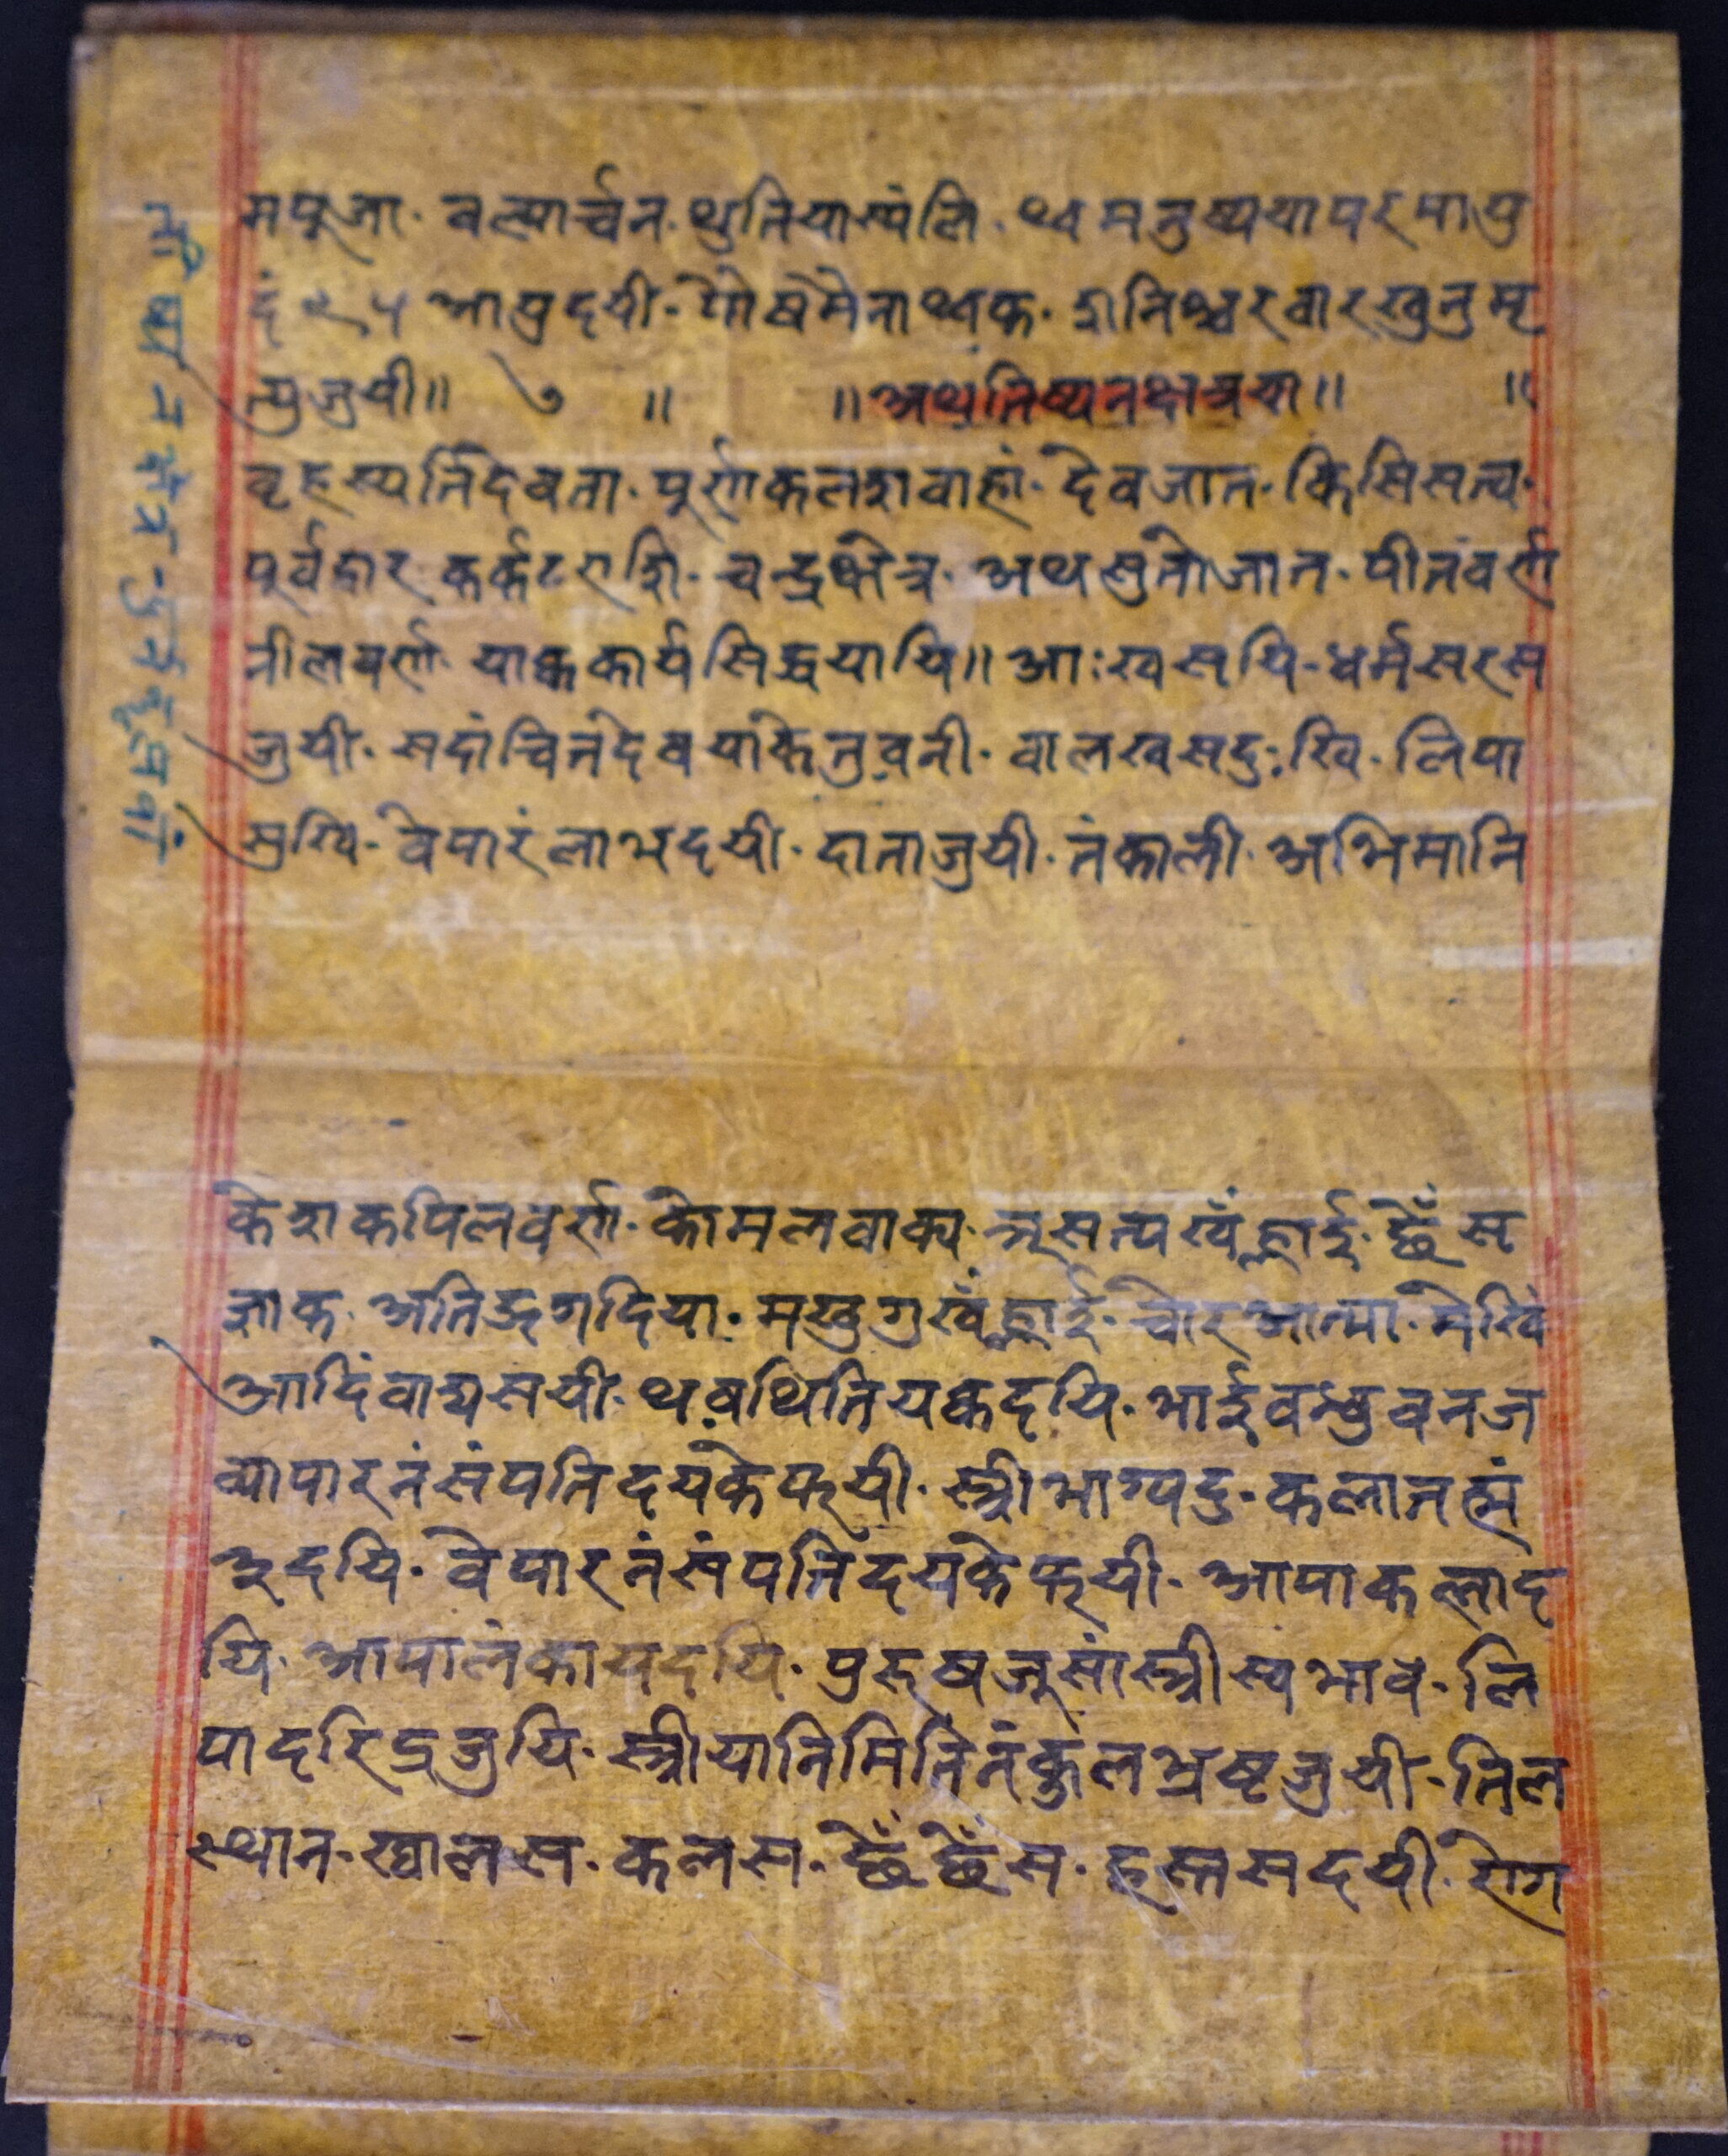 मपूजा. वल्यार्चन. थुतियाण्यंलि. थ्व मनुष्ययापरमायु
दं ९५ आयुदयी. पौषमैनाथ्वक. शनिश्चरवारखुनुमृ
त्युजुयी॥ ७ ॥ ॥अथतिष्यनक्षत्रया॥ ॥
वृहस्पतिदेवता. पूर्णकलशवाहां. देवजात. किसिसत्व.
पूर्वद्वार कर्कटराशि. चन्द्रक्षेत्र. अथशुतोजात. पीतंवर्ण
नीलवर्ण याक्वकार्यसिद्धयायि॥ आःखसयि. धर्मसरस
जुयी. सदांचितंदेवयाकेतुवनी. वालखसदुःखि. लिपा
सुखि. वेपारंलाभदयी. दाताजुयी. तंकाली. अभिमानि
केशकपिलवर्ण. कोमलवाक्य. न्सत्यखँह्लाई. छेँस
ज्ञाक. अतिद्रगदिया. मखुगुखँह्लाई. चोरआत्मा. मेखिं
आदिंवाद्यसयी. थवथितियक्वदयि. भाईवन्धुवनज
व्यापारनंसंपतिदयकेफयी. स्त्रीभाग्यदु. कलातह्मं
दयि. वेपारनंसंपतिदयकेफयी. आपाकल्लाद
यि. आपालंकायदयि. पुरूषजूसांस्त्रीस्वभाव. लि
पादरिद्रजुयि. स्त्रीयानिमितिनंकुलभ्रष्टजुयी. तिल
स्थान. ख्वालस. कलस. छेँछेँस. हस्तसदयी. रोग